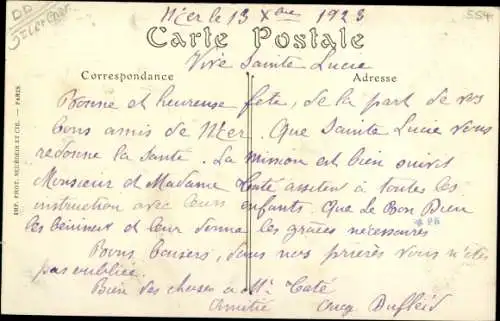 Mer le 13 Xbre 1923
554
Carte Postale
Vive Sainte Lucie
Correspondance
Adresse
Bonne et heureuse fête, de la part de vos
bons amis de Mer. Que Sainte Lucie vous
redonne la santé. La mission est bien suivit
Monsieur et Madame Caté assitent à toutes les
instruction avec leurs enfants Que le Bon Dieu
les bénisset et leur donne les grâces nécessaires
Bons baisers, dans nos prières vous n'êtes
pas oubliée.
Bien des choses a Mr Caté
Amitié
IMP. PHOT. NEURDEIN ET CIE. — PARIS